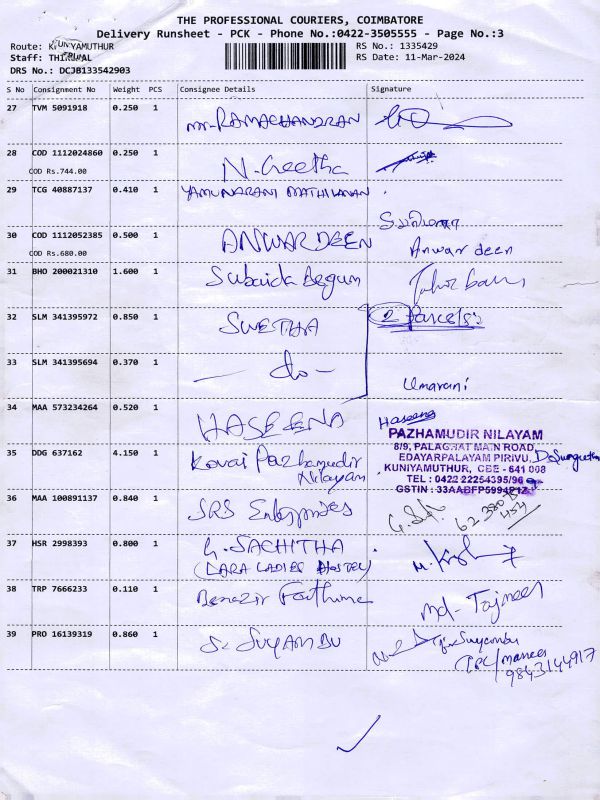 THE PROFESSIONAL COURIERS, COIMBATORE
Delivery Runsheet - PCK - Phone No.:0422-3505555 - Page No.:3
Route: KUNIYAMUTHUR
RS No.: 1335429
Staff: THIRUPAL
RS Date: 11-Mar-2024
DRS No.: DCJB133542903
S No Consignment No Weight PCS Consignee Details Signature
27 TVM 5091918 0.250 1 Mr. RAMACHANDRAN
28 COD 1112024860 0.250 1 N. Geetha
COD Rs.744.00
29 TCG 40887137 0.410 1 YAMUNARANI MATHIVANAN
30 COD 1112052385 0.500 1 ANWARDEEN Anwardeen
COD Rs.680.00
31 BHO 200021310 1.600 1 Subaida Begum
32 SLM 341395972 0.850 1 SWETHA 2 Parcels
33 SLM 341395694 0.370 1 — do — Umarani
34 MAA 573234264 0.520 1 HASEENA Haseena
PAZHAMUDIR NILAYAM
8/9, PALAGHAT MAIN ROAD,
EDAYARPALAYAM PIRIVU,
KUNIYAMUTHUR, CBE - 641 008
TEL : 0422 2254395/96
GSTIN : 33AABFP5994P1Z
35 DDG 637162 4.150 1 Kovai Pazhamudir
Nilayam
36 MAA 100891137 0.840 1 SRS Enterprises
37 HSR 2998393 0.800 1 G. SACHITHA
(DARA LADIES HOSTEL)
38 TRP 7666233 0.110 1 Benazir Fathima Md-Tajmeel
39 PRO 16139319 0.860 1 S. SUYAMBU
9843144917